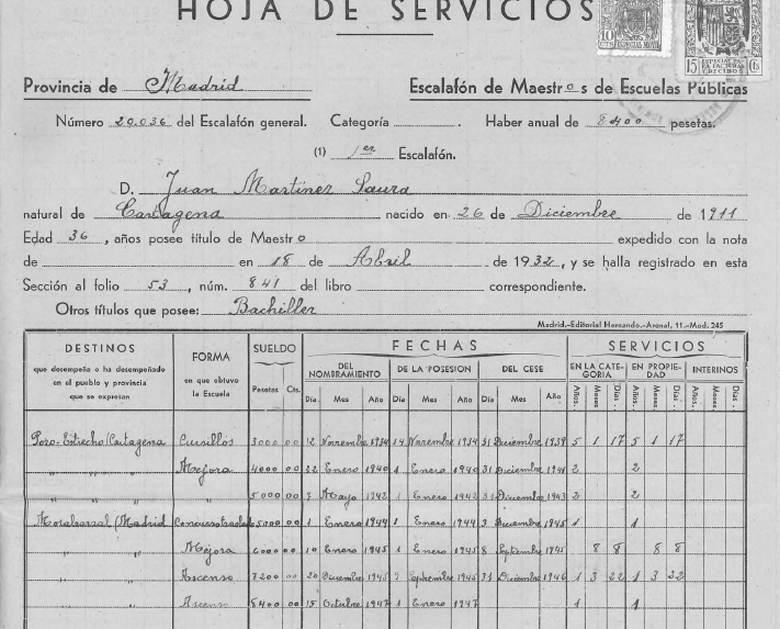 HOJA DE SERVICIOS
10 CTS ESPECIAL MOVIL
15 Cts ESPECIAL PARA FACTURAS Y RECIBOS
Provincia de Madrid Escalafón de Maestros de Escuelas Públicas
Número 20.036 del Escalafón general. Categoría Haber anual de 8400 pesetas.
(1) 1er Escalafón.
D. Juan Martinez Saura
natural de Cartagena nacido en 26 de Diciembre de 1911
Edad 36, años posee título de Maestro expedido con la nota
de en 18 de Abril de 1932, y se halla registrado en esta
Sección al folio 53, núm. 841 del libro correspondiente.
Otros títulos que posee: Bachiller
Madrid.-Editorial Hernando.-Arenal, 11.-Mod. 245
DESTINOS FORMA SUELDO FECHAS SERVICIOS
que desempeña o ha desempeñado en el pueblo y provincia que se expresan
en que obtuvo la Escuela
Pesetas Cts.
DEL NOMBRAMIENTO DE LA POSESION DEL CESE EN LA CATEGORIA EN PROPIEDAD INTERINOS
Día Mes Año Día Mes Año Día Mes Año Años. Meses Días. Años. Meses Días. Años. Meses. Días.
Pozo-Estrecho (Cartagena Cursillos 3000 00 12 Novembre 1934 14 Novembre 1934 31 Diciembre 1939 5 1 17 5 1 17
" " " Mejora 4000 00 22 Enero 1940 1 Enero 1940 31 Diciembre 1941 2 2
" " " " 5000 00 7 Mayo 1942 1 Enero 1942 31 Diciembre 1943 2 2
(Madrid 5000 00 1 Enero 1944 1 Enero 1944 3 Diciembre 1945 1 1
" " Mejora 6000 00 10 Enero 1945 1 Enero 1945 8 Septiembre 1945 8 8 8 8
" " Ascenso 7200 00 20 Diciembre 1945 Septiembre 1945 31 Diciembre 1946 1 3 22 1 3 22
" " Ascenso 8400 00 15 Octubre 1947 1 Enero 1947 1 1